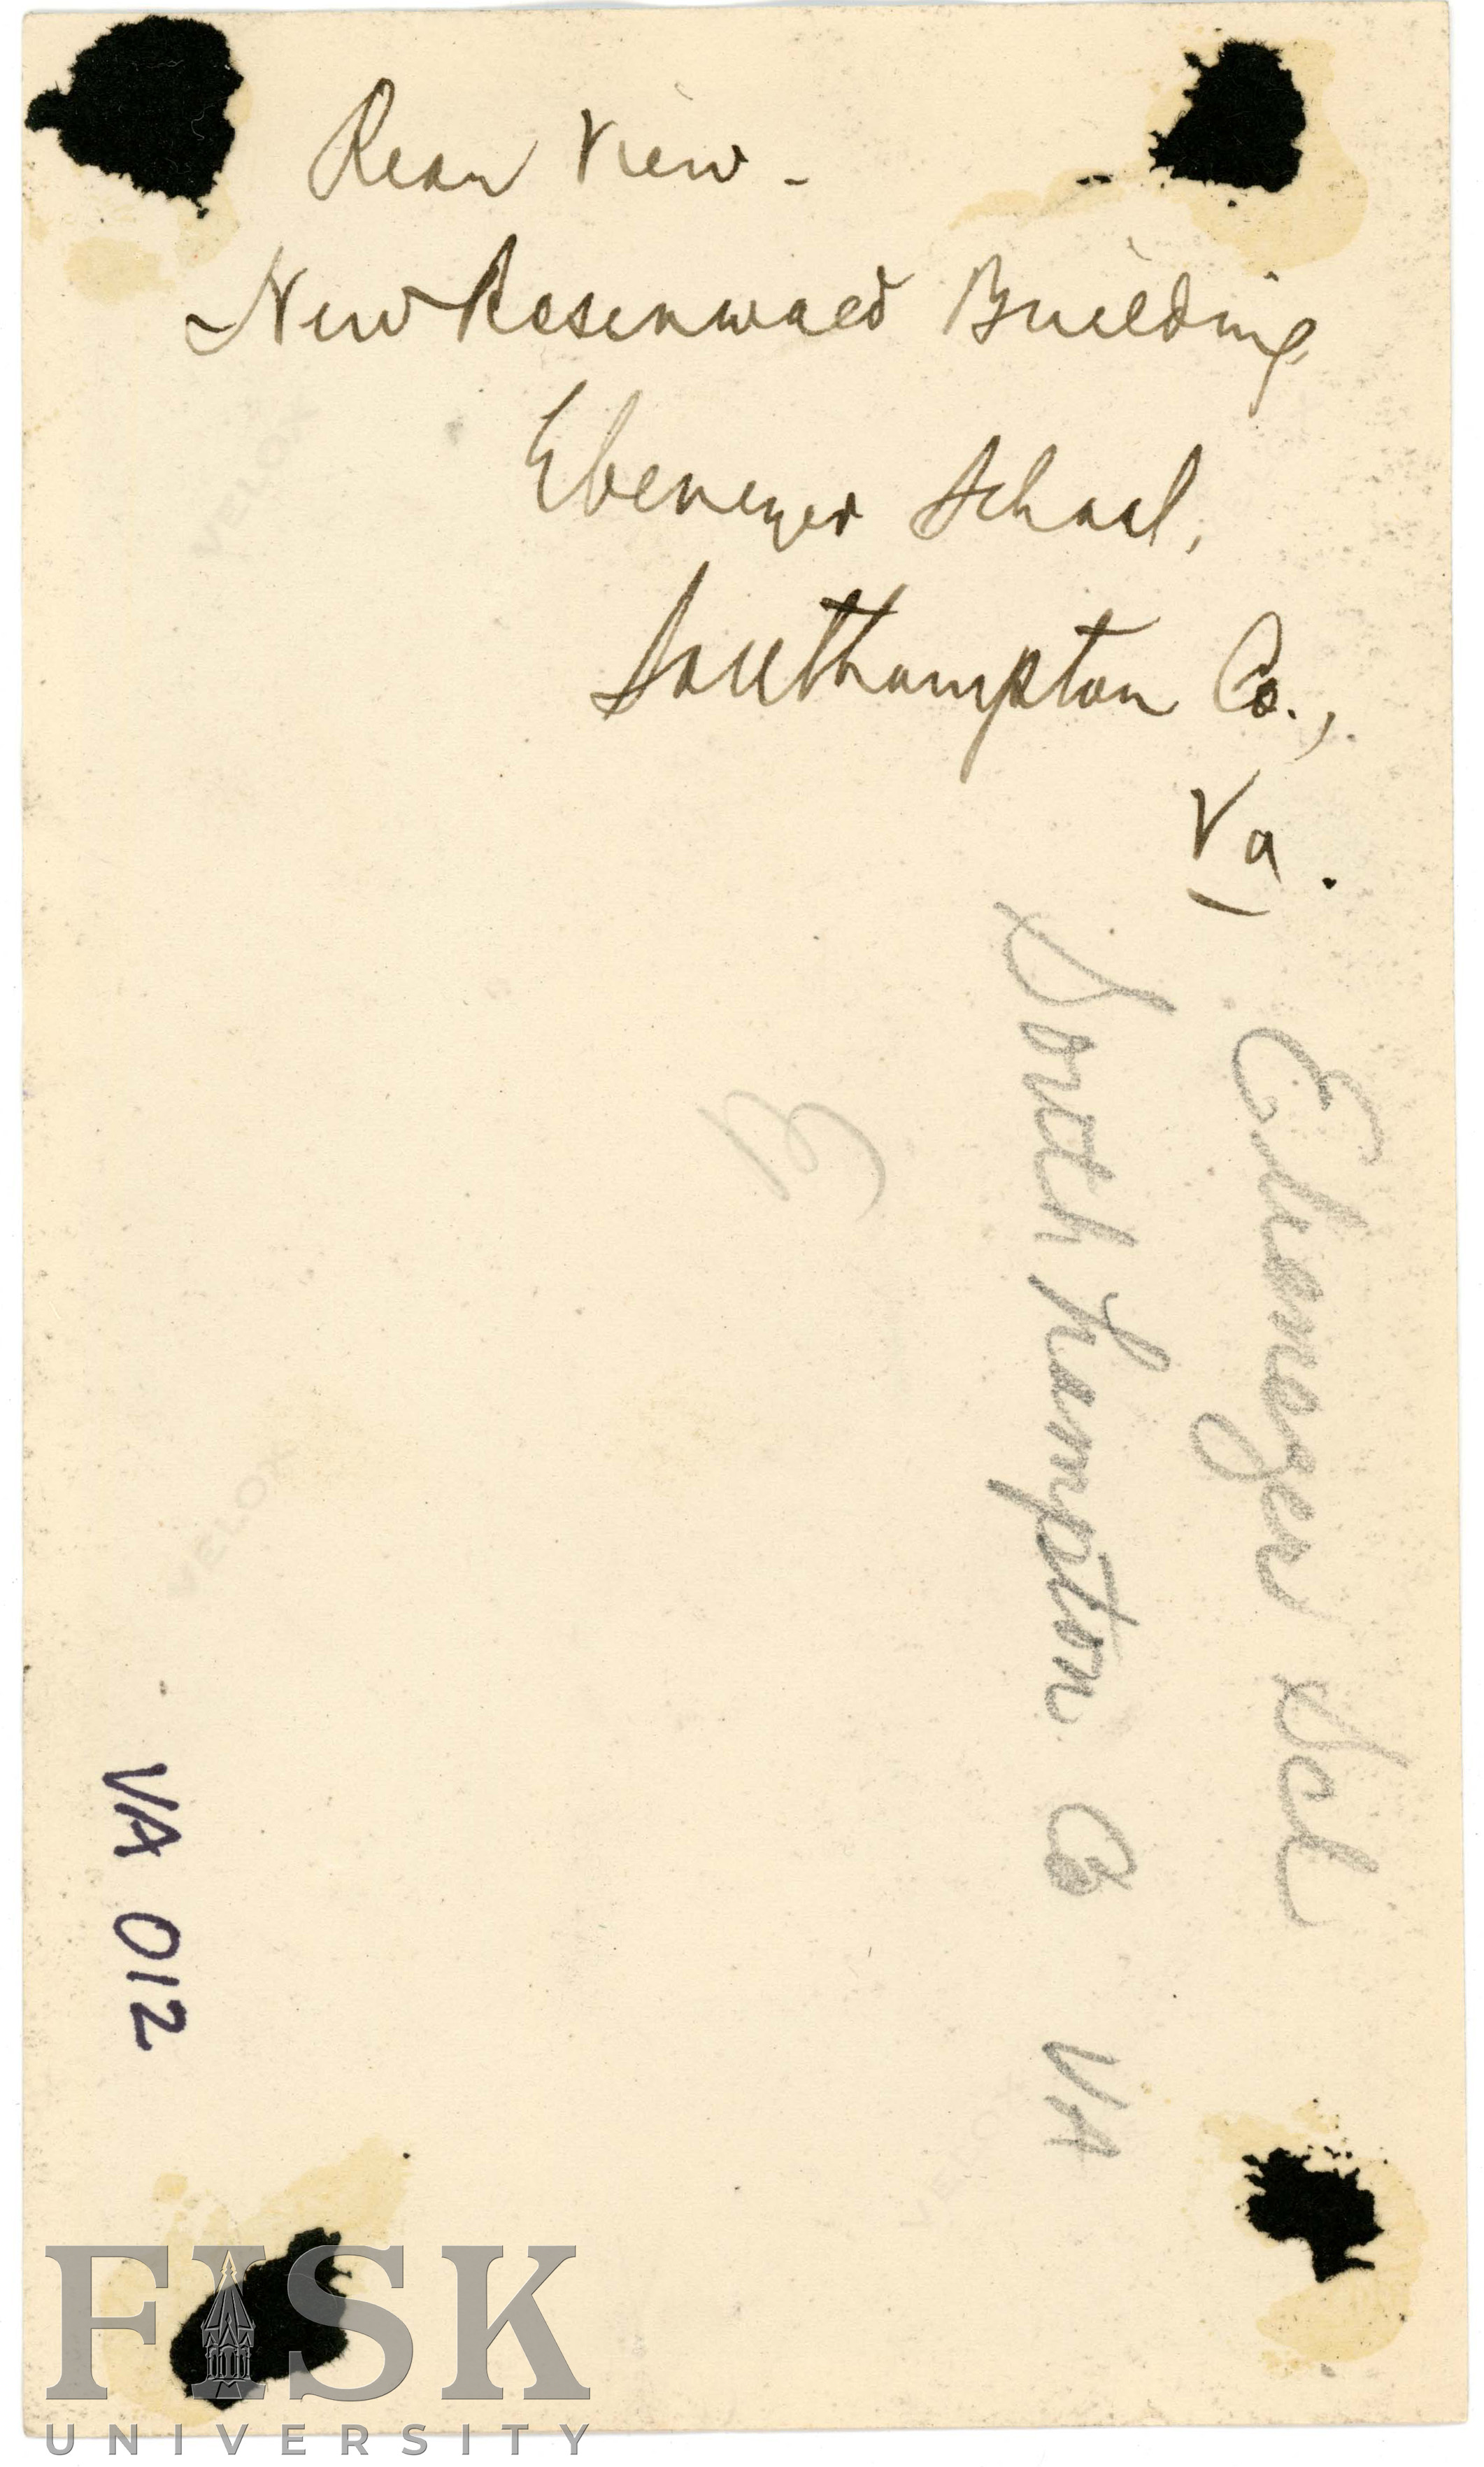 Rear View -
New Rosenwald Building
Ebenezer School,
Southampton Co.,
Va.
Ebenezer Scl
Southhampton Co VA
VA 012
VELOX
VELOX
VELOX
FISK
UNIVERSITY